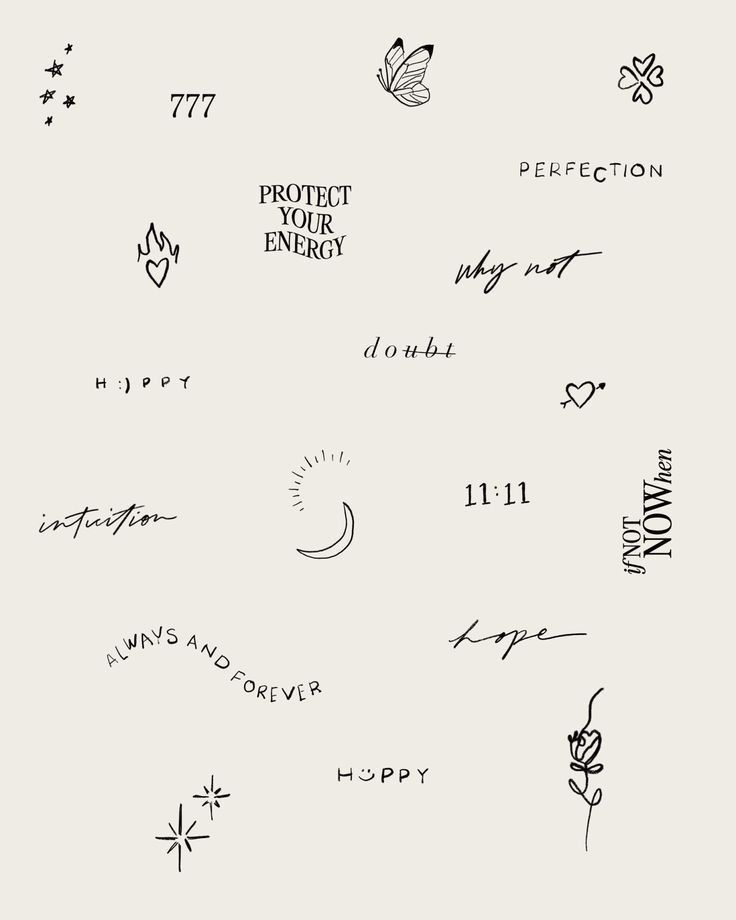 777
PERFECTION
PROTECT
YOUR
ENERGY
why not
doubt
H :) P P Y
intuition
11:11
if NOT
NOWhen
ALWAYS AND FOREVER
hope
H Ü P P Y